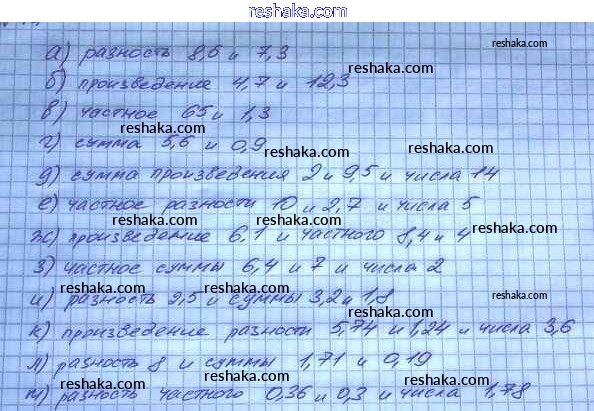 reshaka.com
а) разность 8,5 и 7,3
reshaka.com
reshaka.com
б) произведение 4,7 и 12,3
в) частное 65 и 1,3
reshaka.com
г) сумма 5,6 и 0,9
reshaka.com
reshaka.com
д) сумма произведения 2 и 9,5 и числа 14
е) частное разности 10 и 2,7 и числа 5
reshaka.com
reshaka.com
ж) произведение 6,1 и частного 8,4 и 4
reshaka.com
з) частное суммы 6,4 и 7 и числа 2
и) разность 9,5 и суммы 3,2 и 1,8
reshaka.com
reshaka.com
к) произведение разности 5,74 и 1,24 и числа 3,6
reshaka.com
л) разность 8 и суммы 1,71 и 0,19
reshaka.com
reshaka.com
м) разность частного 0,36 и 0,3 и числа 1,78
reshaka.com